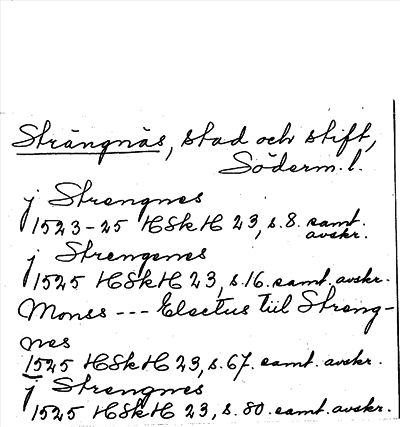 Strängnäs, stad och stift,
Söderm. l.
j Strengnes
1523-25 HSkH 23, s. 8. samt.
avskr.
j Strengenes
1525 HSkH 23, s. 16. samt. avskr.
Monss --- Electus tiil Streng-
nes
1525 HSkH 23, s. 67. samt. avskr.
j Strengnes
1525 HSkH 23, s. 80. samt. avskr.